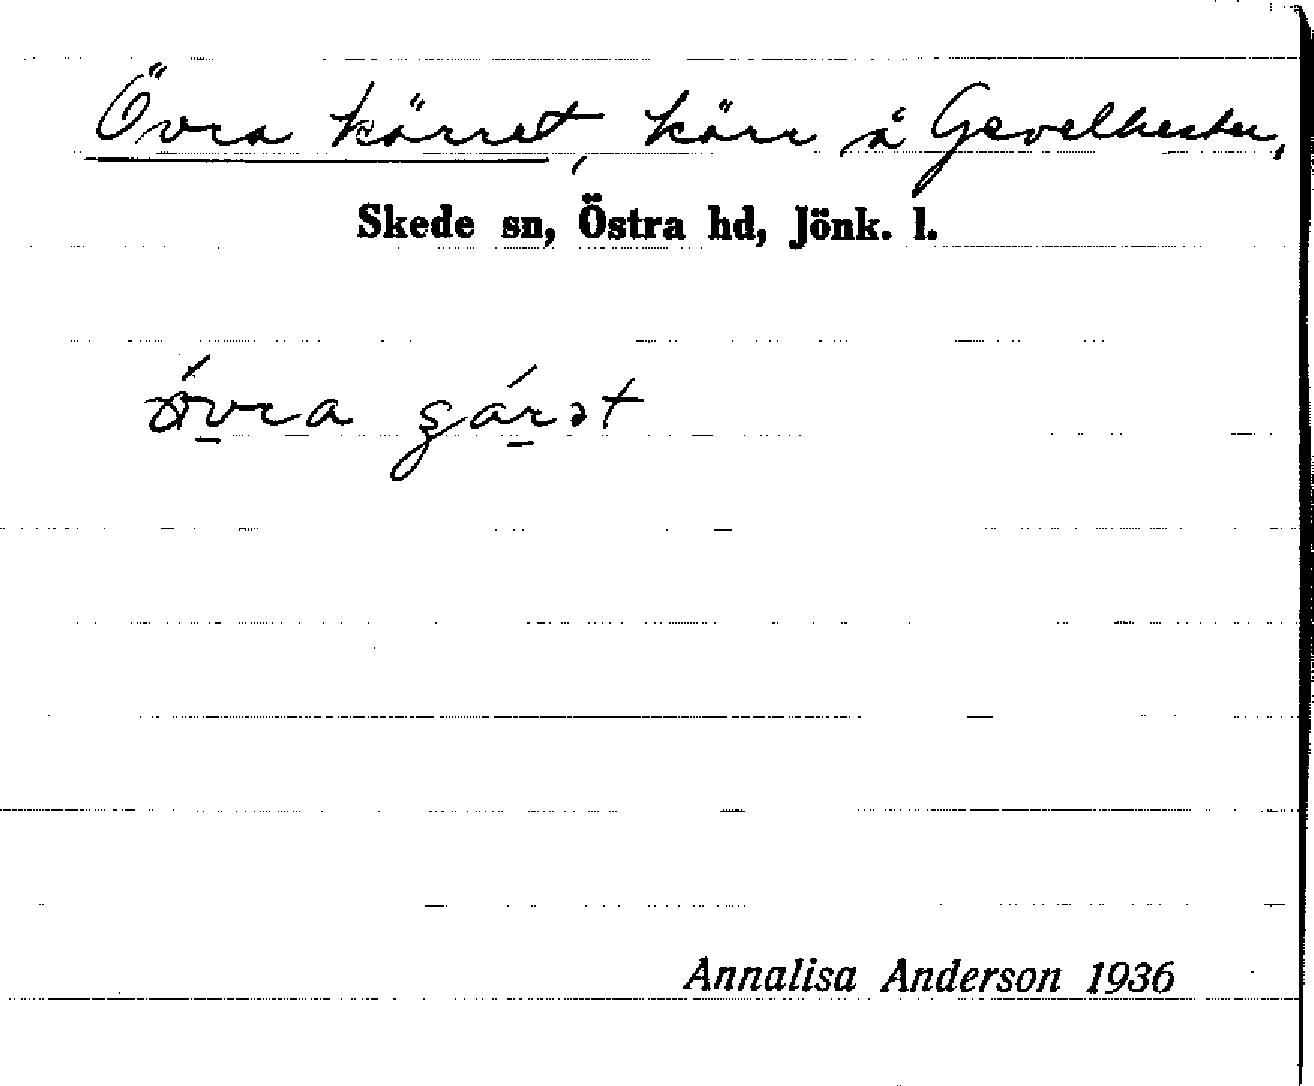 Övra kärret, kärr å Gevelhester,
Skede sn, Östra hd, Jönk. l.
Annalisa Anderson 1936